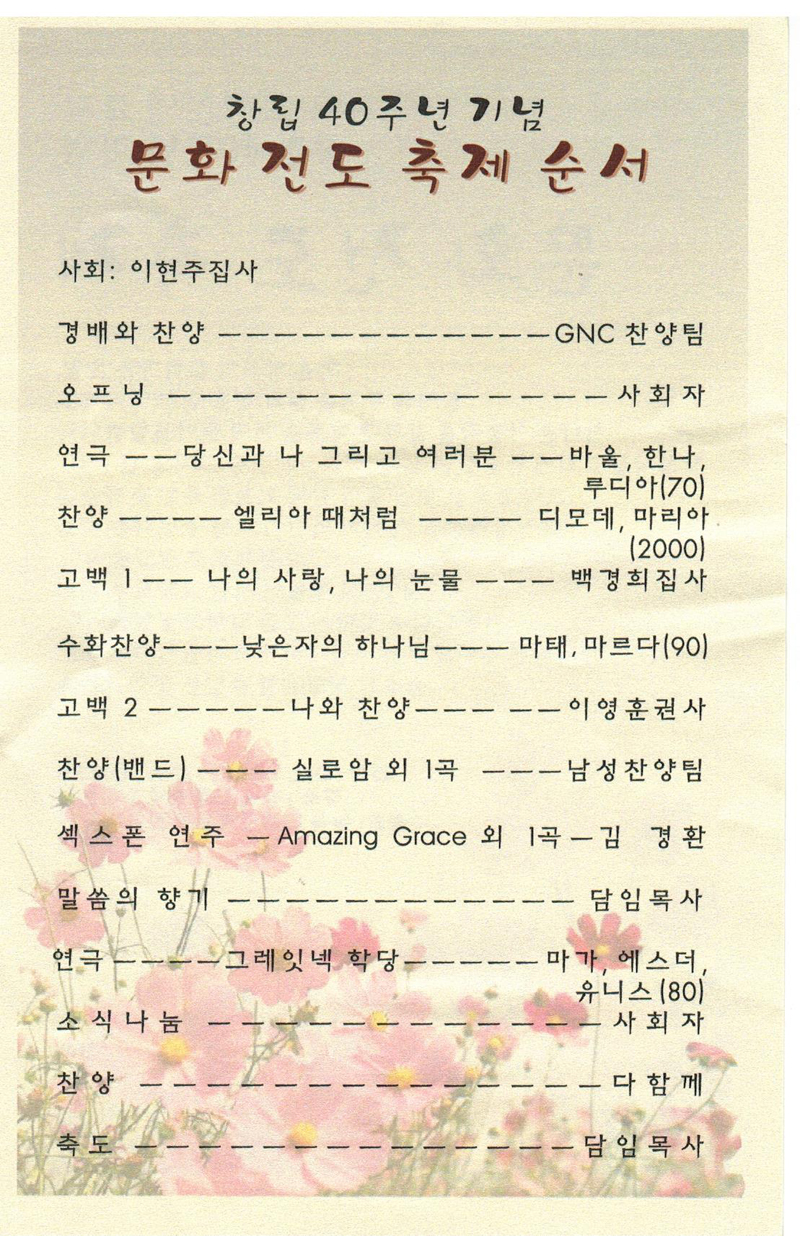 창립 40주년 기념
문화 전도 축제 순서
사회: 이현주집사
경배와 찬양 ————————————GNC 찬양팀
오프닝 —————————————— 사회자
연극 ——당신과 나 그리고 여러분 ——바울, 한나,
루디아(70)
찬양 ———— 엘리아 때처럼 ———— 디모데, 마리아
(2000)
고백 1 —— 나의 사랑, 나의 눈물 ——— 백경희집사
수화찬양———낮은자의 하나님——— 마태, 마르다(90)
고백 2 —————나와 찬양——— ——이영훈권사
찬양(밴드) ——— 실로암 외 1곡 ———남성찬양팀
섹스폰 연주 —Amazing Grace 외 1곡—김 경환
말씀의 향기 ————————————— 담임목사
연극————그레잇넥 학당————— 마가, 에스더,
유니스(80)
소식나눔 ————————————— 사회자
찬양 ——————————————— 다함께
축도 —————————————— 담임목사